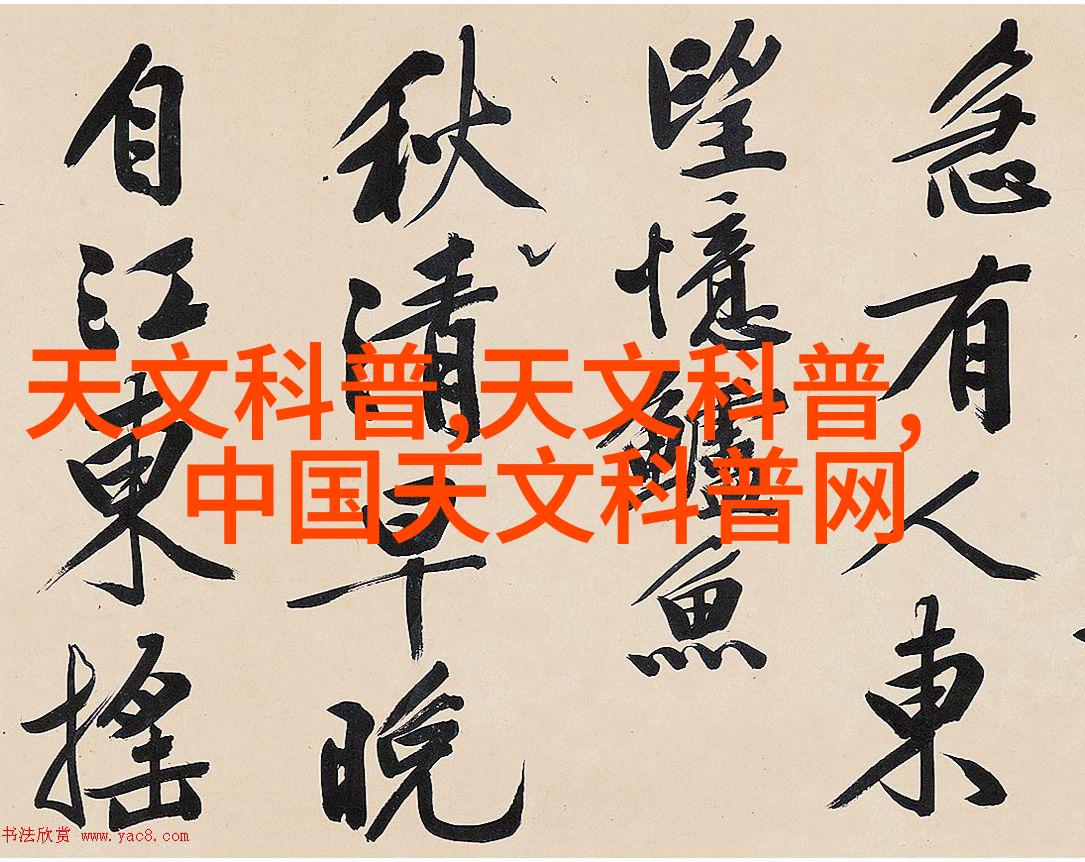 急有人東
望憶鱸魚
秋清早晚
自江東摇
天文科普,天文科普,
中国天文科普网
书法欣赏 www.yac8.com